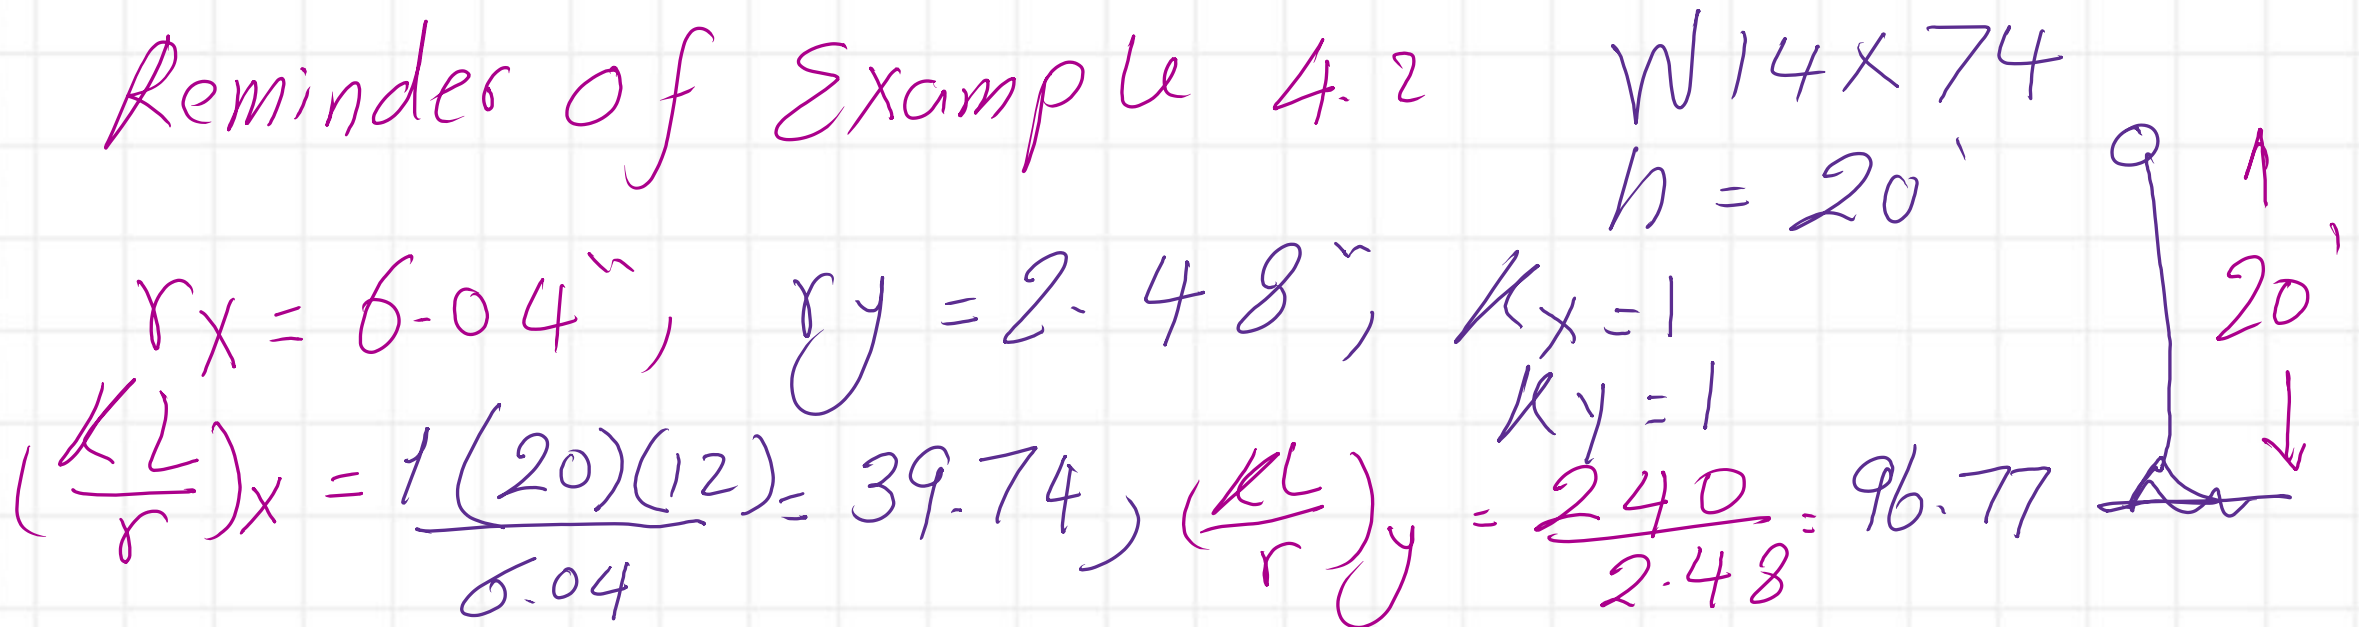 Reminder of Example 4.2 W14×74
h = 20'
20'
rx = 6.04", ry = 2.48", Kx = 1
Ky = 1
(KL/r)x = 1(20)(12)/6.04 = 39.74, (KL/r)y = 240/2.48 = 96.77